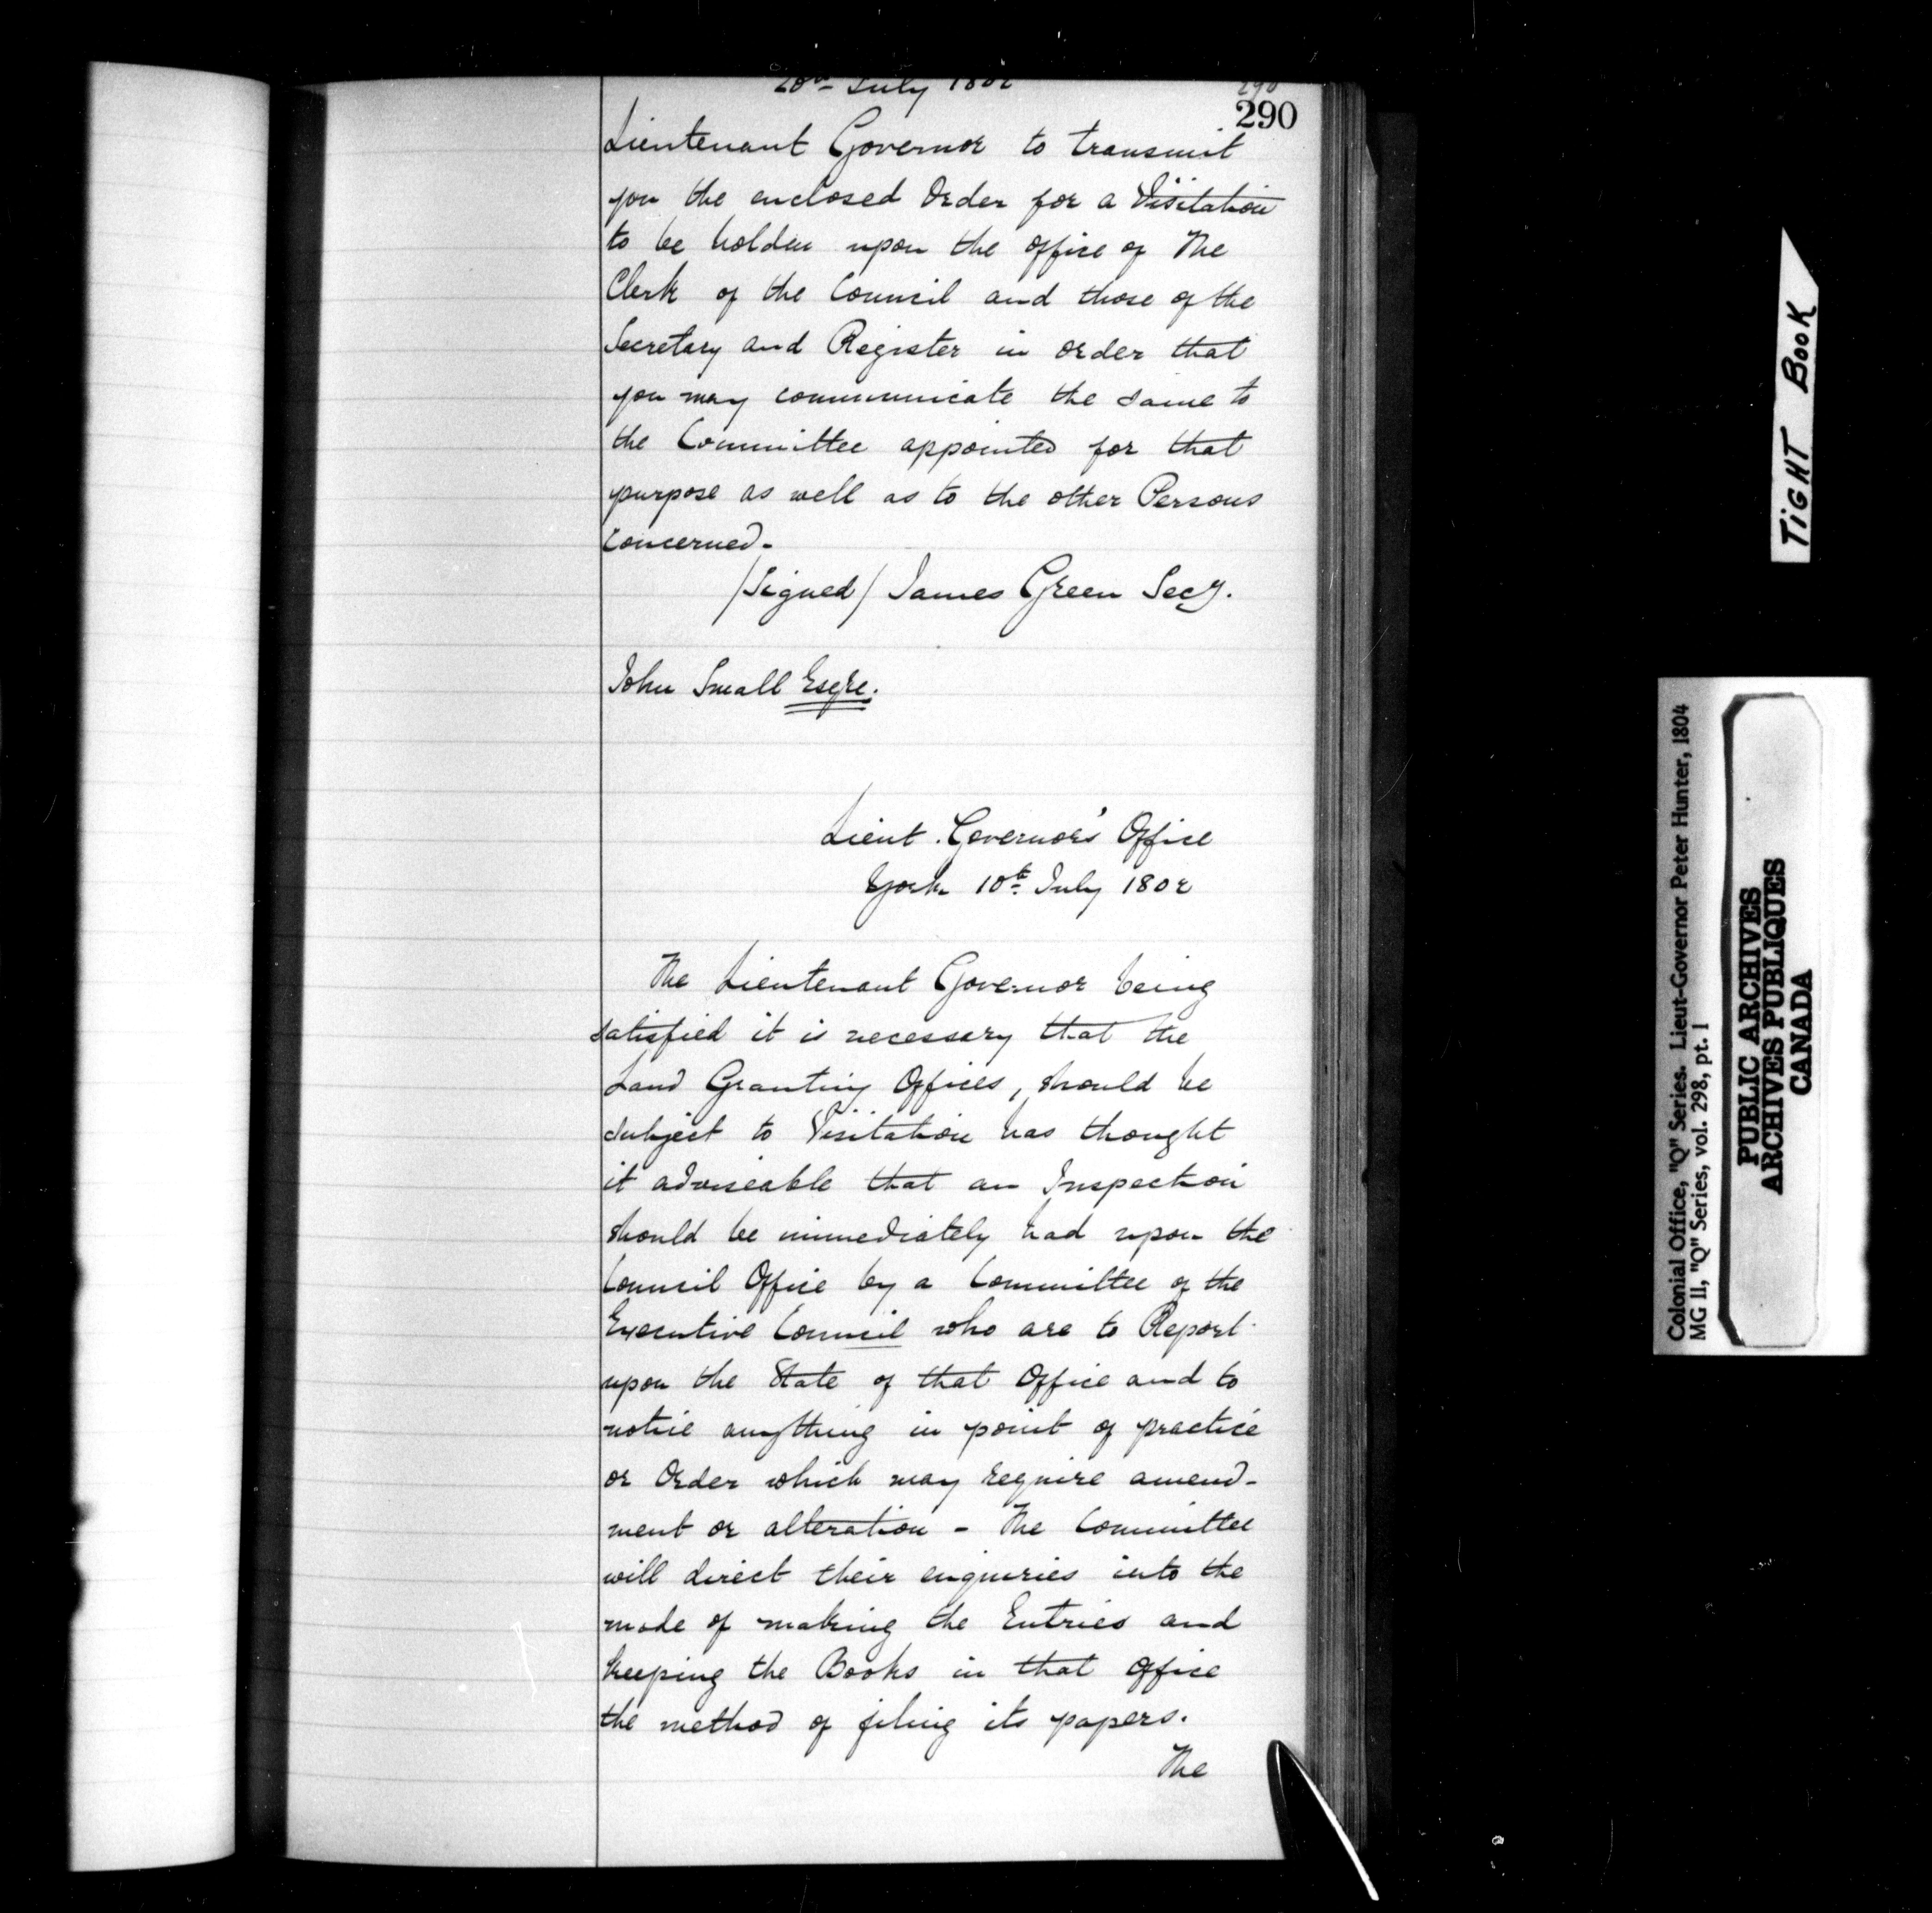 20th July 1802
290
290
Lieutenant Governor to transmit
you the enclosed Order for a Visitation
to be holden upon the office of The
Clerk of the Council and those of the
Secretary and Register in order that
you may communicate the same to
the Committee appointed for that
purpose as well as to the other Persons
Concerned-
/Signed/ James Green Secy.
John Small Esqre.
Lieut. Governor's Office
York 10th July 1802
The Lieutenant Governor being
satisfied it is necessary that the
Land Granting Offices, should be
subject to Visitation has thought
it adviseable that an Inspection
should be immediately had upon the
Council Office by a Committee of the
Executive Council who are to Report
upon the State of that Office and to
notice anything in point of practice
or Order which may require amend-
ment or alteration - The Committee
will direct their enquiries into the
mode of making the Entries and
keeping the Books in that office
the method of filing its papers.
The
TIGHT BOOK
Colonial Office, "Q" Series. Lieut-Governor Peter Hunter, 1804
MG 11, "Q" Series, vol. 298, pt. 1
PUBLIC ARCHIVES
ARCHIVES PUBLIQUES
CANADA